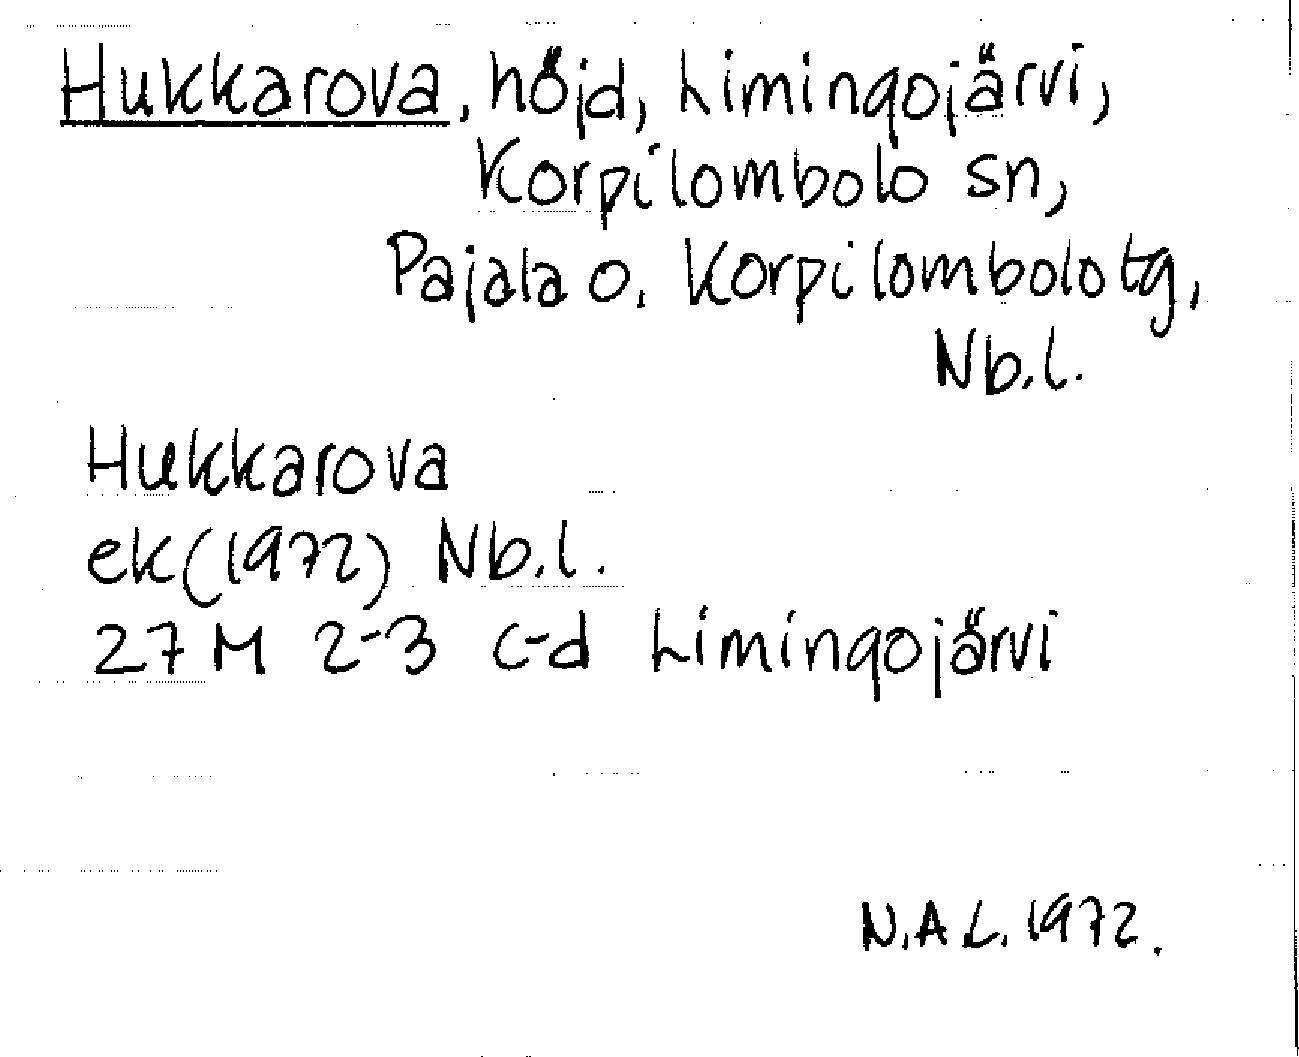 Hukkarova, höjd, Limingojärvi,
Korpilombolo sn,
Pajala o. Korpilombolo tg,
Nb.l.
Hukkarova
ek(1972) Nb.l.
27 M 2-3 c-d Limingojärvi
N.A L. 1972.